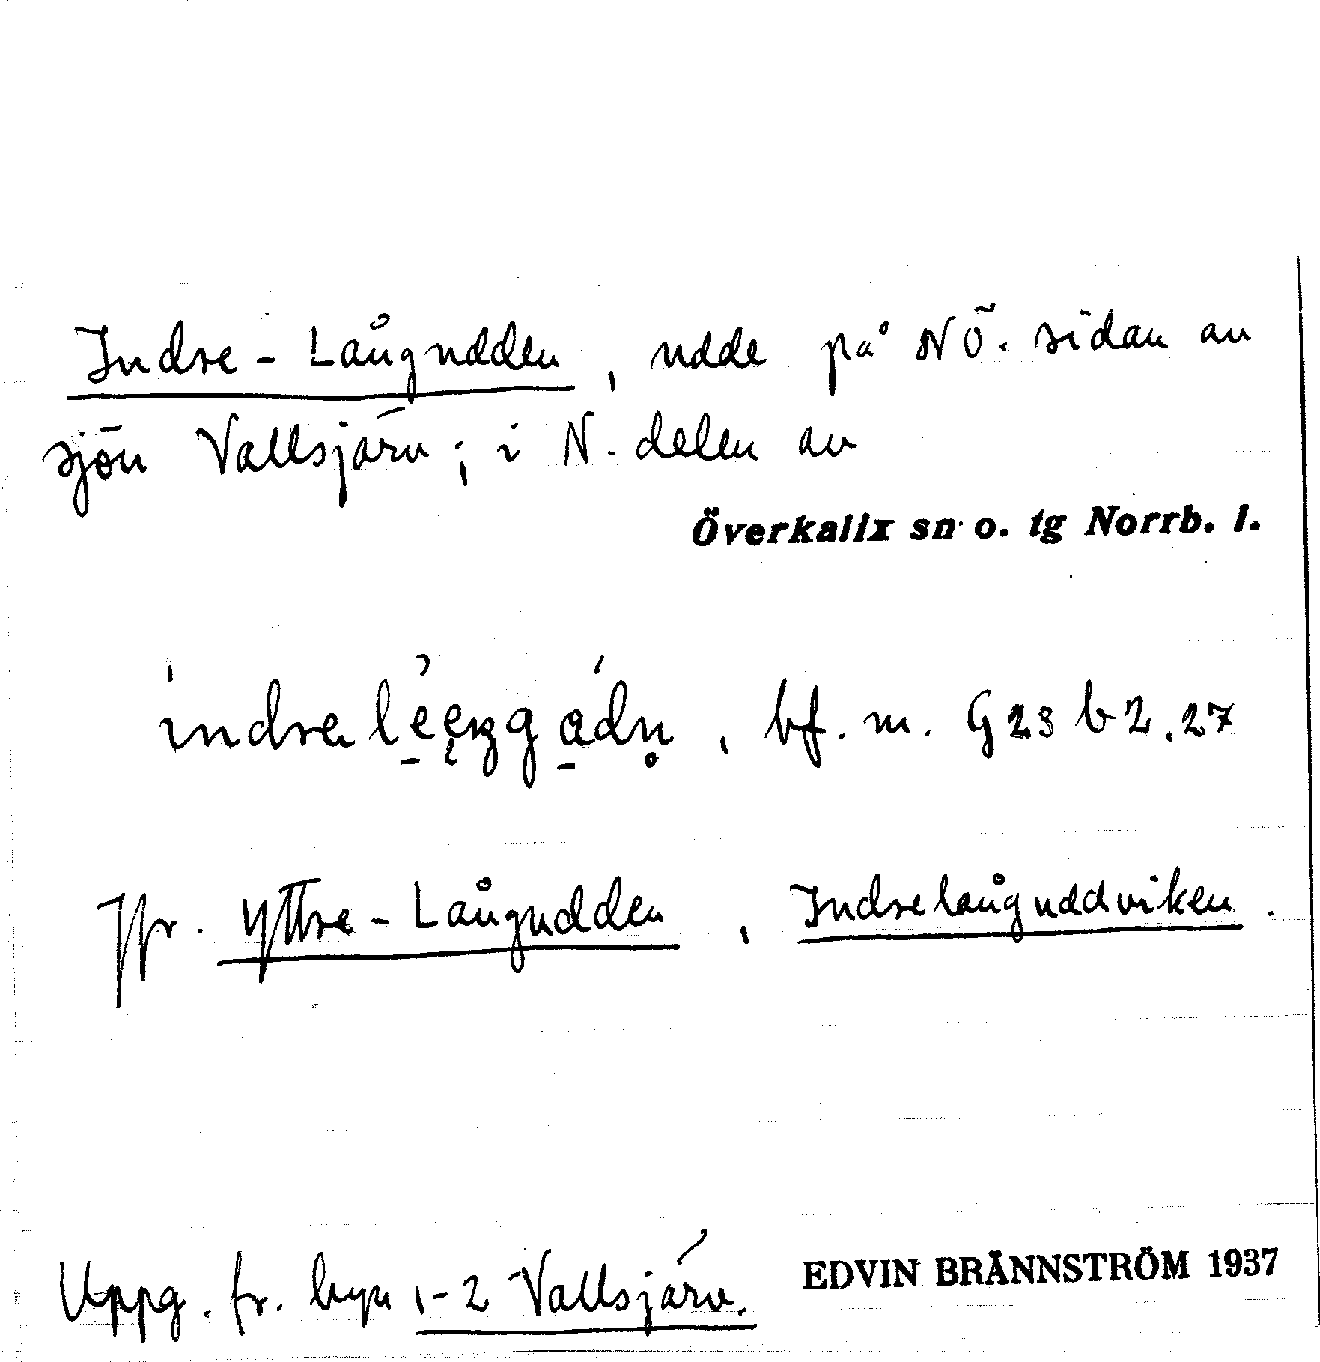 Indre-Långudden, udde på NÖ. sidan av
sjön Vallsjärv; i N. delen av
Överkalix sn o. tg Norrb. l.
bf. m. G23 b2.27
Jfr. Yttre-Långudden, Indrelånguddviken.
Uppg. fr. byn 1-2 Vallsjärv. EDVIN BRÄNNSTRÖM 1937